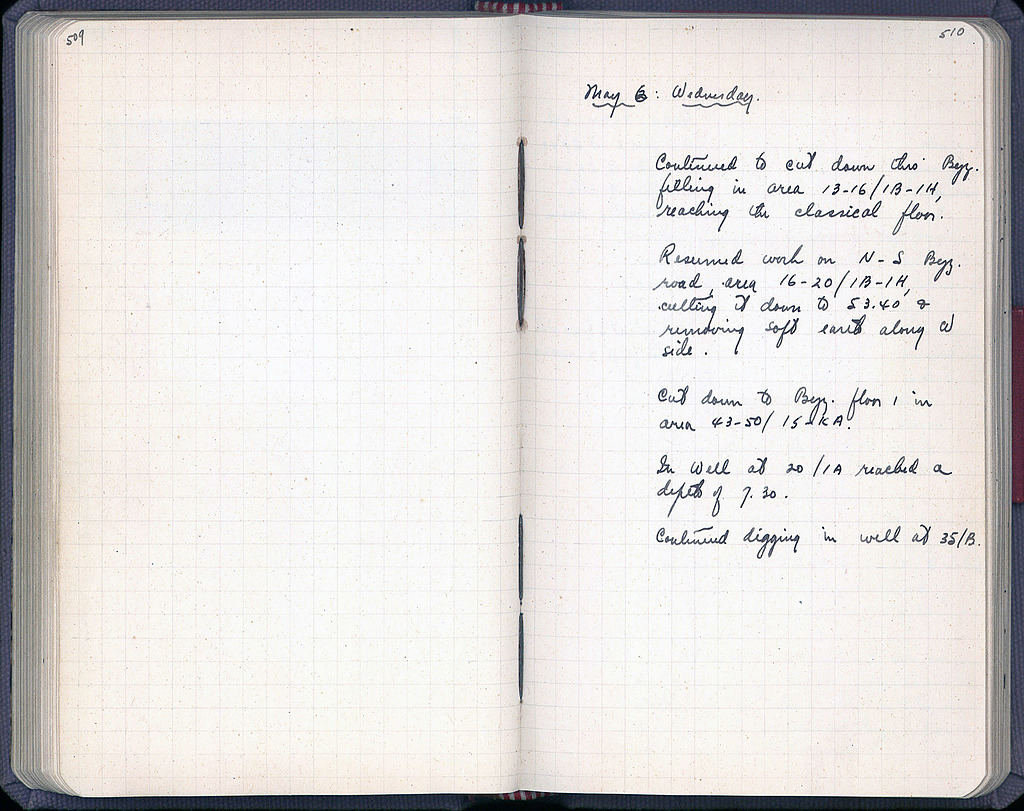 509
510
May 6: Wednesday.
Continued to cut down thro' Byz.
filling in area 13-16/1B-1H,
reaching the classical floor.
Resumed work on N-S Byz.
road, area 16-20/1B-1H,
cutting it down to 53.40 &
removing soft earth along W
side.
Cut down to Byz. floor 1 in
area 43-50/15-KA.
In Well at 20/1A reached a
depth of 7.30.
Continued digging in well at 35/B.